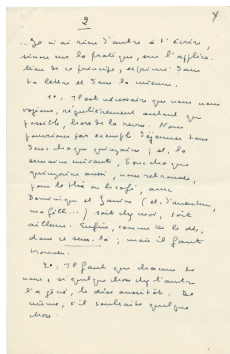 2
... Je n'ai rien d'autre à t'écrire,
sinon sur la pratique, sur l'applica-
tion de ce principe, exprimé dans
ta lettre et dans la mienne.
1o, Il est nécessaire que nous nous
voyions, régulièrement autant que
possible, hors de la revue. Nous
pourrions par exemple déjeuner tous
deux chaque quinzaine ; et, la
semaine suivante, donc chaque
quinzaine aussi, nous retrouver,
pour le thé ou le café, avec
Dominique et Janine (et d'aventure,
ma fille...) soit chez moi, soit
ailleurs. Enfin, comme tu le dis,
dans ce sens-là ; mais il faut
trouver.
2o, Il faut que chacun de
nous, si quelque chose chez l'autre
l'a gêné, le dise aussitôt. De
même, s'il souhaite quelque
chose.